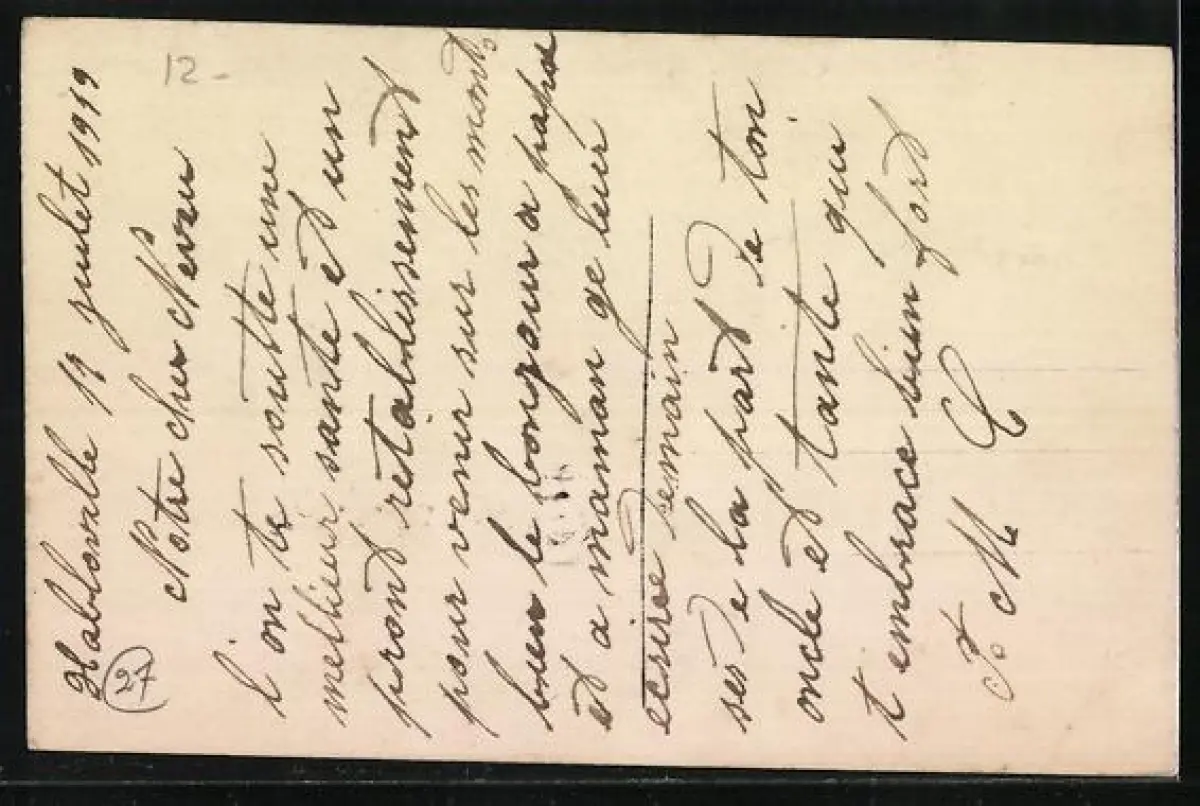 Habloville 13 juilet 1919
Notre cher Neveu
l'on te soutte une
mellieur sante et un
pront retablissement
pour venir sur les monts
bien le bonjour a papa
et a maman ge leur
ecrire demain
ses de la part de ton
oncle et tante qui
t embrace bien fort
M
12 -
27